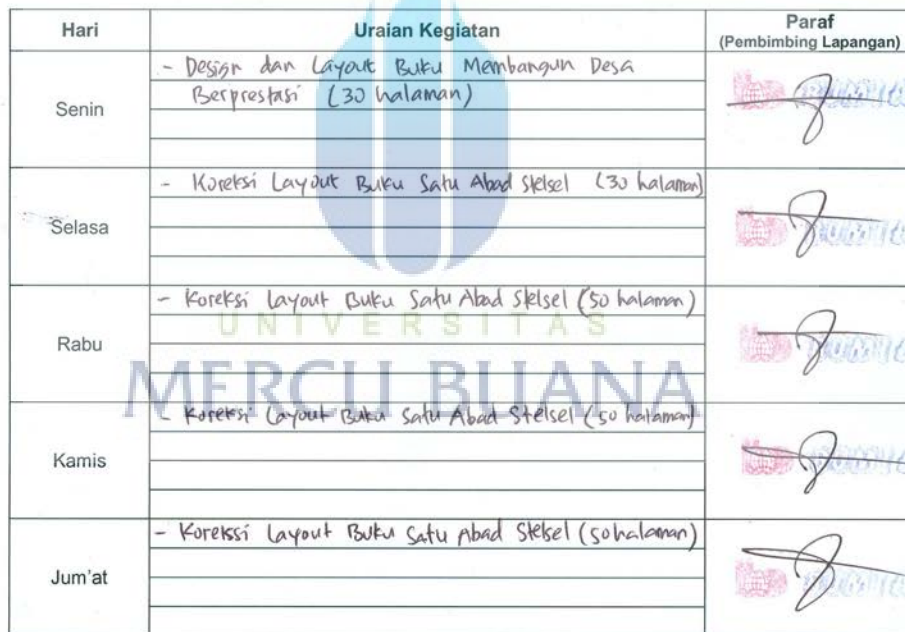 Hari Uraian Kegiatan Paraf
(Pembimbing Lapangan)
Senin
- Design dan Layout Buku Membangun Desa
Berprestasi (30 halaman)
Selasa
- Koreksi Layout Buku Satu Abad Stelsel (30 halaman)
Rabu
- Koreksi Layout Buku Satu Abad Stelsel (50 halaman)
UNIVERSITAS
MERCU BUANA
Kamis
- Koreksi Layout Buku Satu Abad Stelsel (50 halaman)
Jum'at
- Korekssi Layout Buku Satu Abad Stelsel (50 halaman)